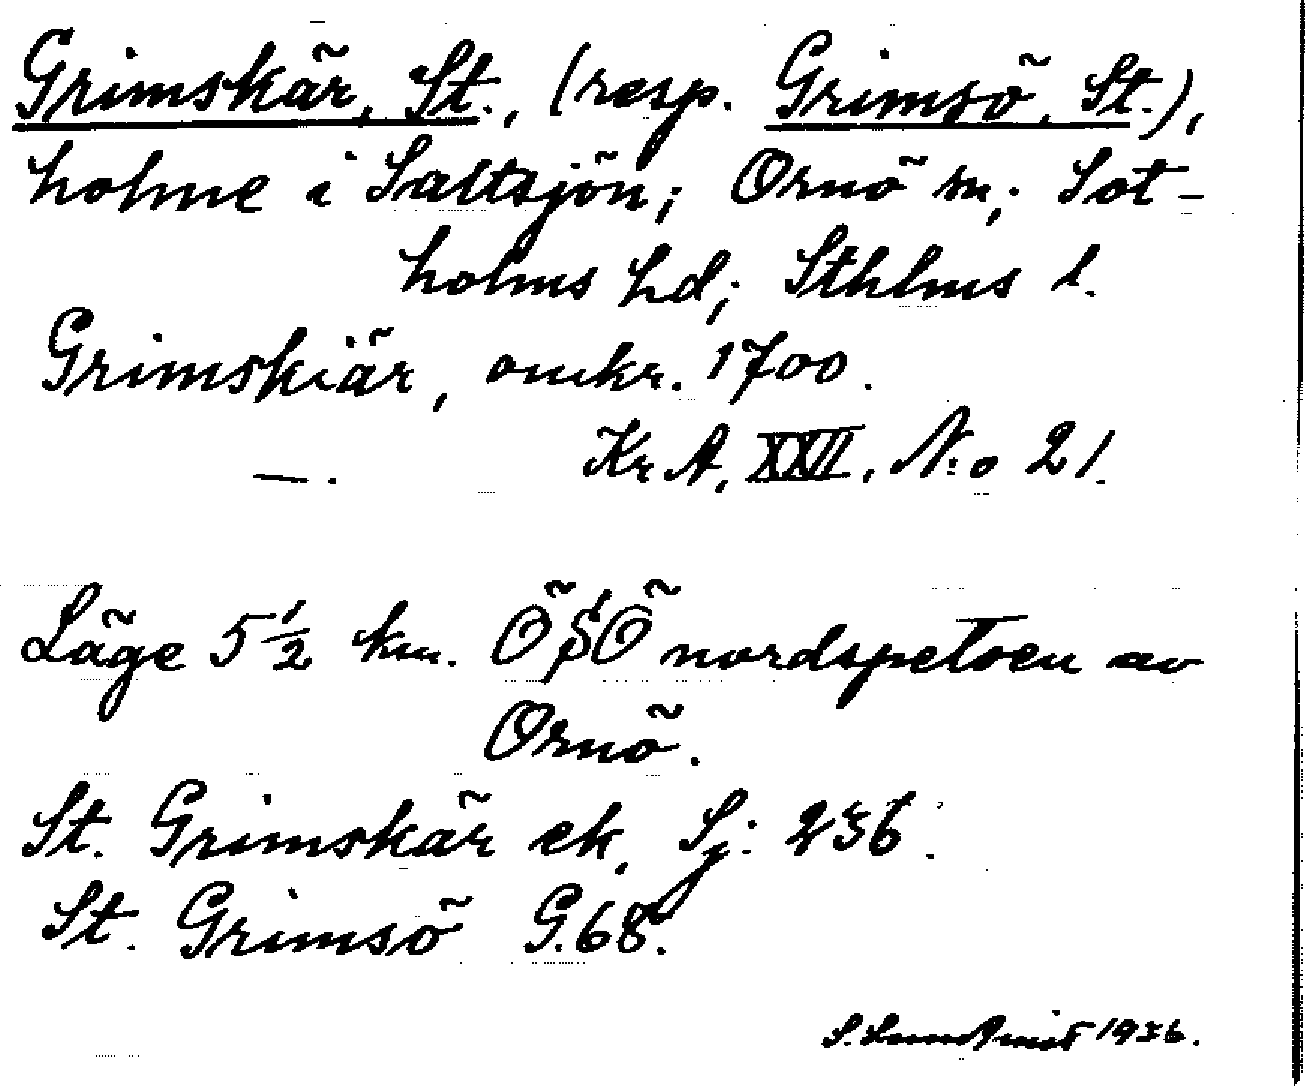 Grimskär, St., (resp. Grimsö, St.),
holme i Saltsjön; Ornö sn; Sot-
holms hd; Sthlms l.
Grimskiär, omkr. 1700.
—. Kr A, XXII, N:o 21.
Läge 5 1/2 km. ÖSÖ nordspetsen av
Ornö.
St. Grimskär ek, Sj: 236.
St. Grimsö G.68.
S. Lundqvist 1936.